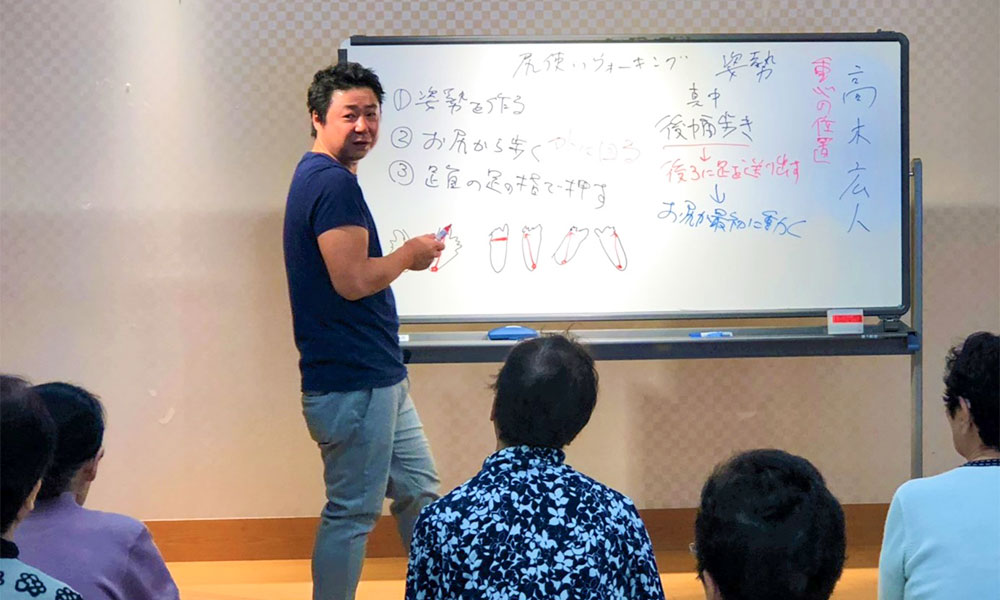 尻使いウォーキング
姿勢
①姿勢を作る
②お尻から歩く
③足直の足の指で押す
真中
後幅歩き
↓
後ろに足を送り出す
↓
お尻が最初に動く
重心の位置
高木広人